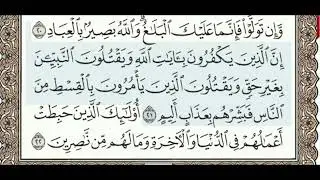 وَّإِن تَوَلَّوْا۟ فَإِنَّمَا عَلَيْكَ ٱلْبَلَٰغُ ۗ وَٱللَّهُ بَصِيرٌۢ بِٱلْعِبَادِ ٢٠
إِنَّ ٱلَّذِينَ يَكْفُرُونَ بِـَٔايَٰتِ ٱللَّهِ وَيَقْتُلُونَ ٱلنَّبِيِّـۧنَ
بِغَيْرِ حَقٍّ وَيَقْتُلُونَ ٱلَّذِينَ يَأْمُرُونَ بِٱلْقِسْطِ مِنَ
ٱلنَّاسِ فَبَشِّرْهُم بِعَذَابٍ أَلِيمٍ ٢١ أُو۟لَٰٓئِكَ ٱلَّذِينَ حَبِطَتْ
أَعْمَٰلُهُمْ فِى ٱلدُّنْيَا وَٱلْـَٔاخِرَةِ وَمَا لَهُم مِّن نَّٰصِرِينَ ٢٢